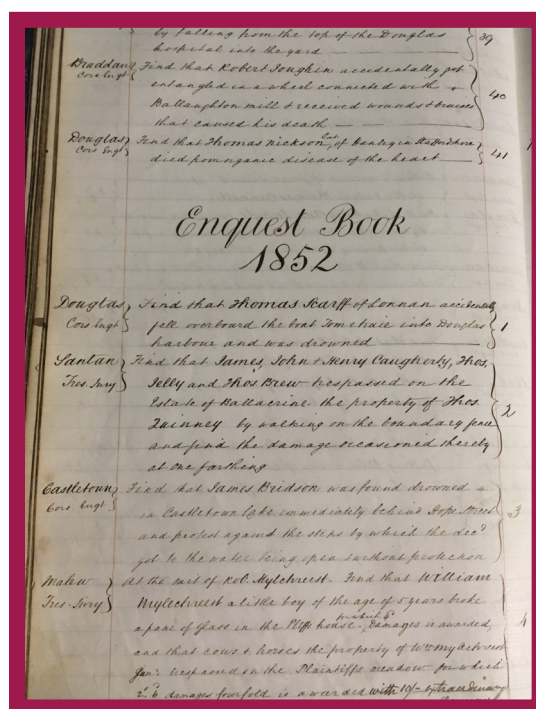 by falling from the top of the Douglas
hospital into the yard
39
Braddan
Cors Enqt
Find that Robert Joughin accidentally got
entangled in a wheel connected with
Ballaughton mill & received wounds & bruises
that caused his death
40
Douglas
Cors Enqt
Find that Thomas Nickson, of Hanley in Staffordshire
died from organic disease of the heart
41
Enquest Book
1852
Douglas
Cors Enqt
Find that Thomas Scarff of Lonnan accidentally
fell overboard the boat into Douglas
harbour and was drowned
1
Santan
Tres. Jury
Find that James, John & Henry Caugherty, Thos.
Jelly and Thos Brew trespassed on the
Estate of Ballacrine the property of Thos.
Quinney by walking on the boundary fence
and find the damage occasioned thereby
at one farthing
2
Castletown
Cors. Enqt
Find that James Bridson was found drowned
in Castletown Lake immediately behind Hope Street
and protest against the steps by which the decd
got to the water being open without protection
3
Malew
Tres. Jury
At the suit of Rob. Mylchreest. Find that William
Mylechreest a little boy of the age of 5 years broke
a pane of glass in the Pltffs house. Damages is awarded,
and that cows & horses the property of Wm Mylchreest
Junr. trespassed on the Plaintiffs meadow for which
2s. 6 damages fourfold is awarded with 10/- extraordinary
4